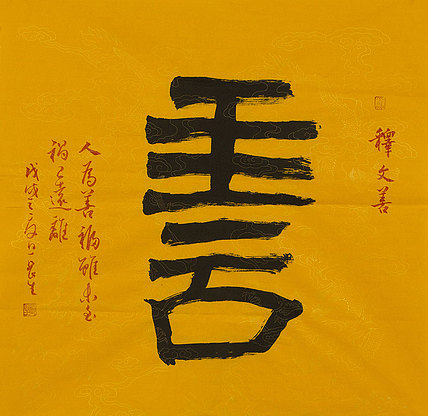 釋文善
善
人為善福雖未至
禍已遠離
戊戌之夏